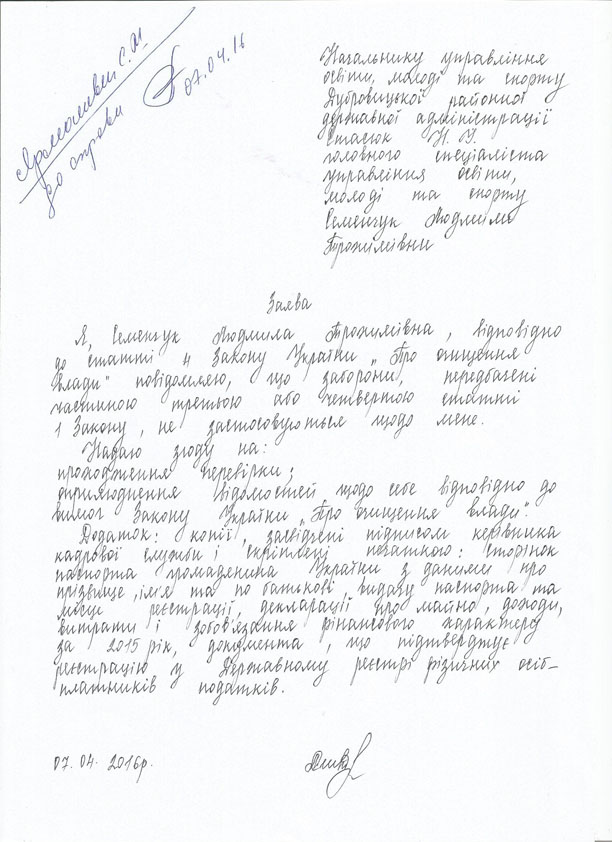 до справи
07.04.16
Начальнику управління
освіти, молоді та спорту
Дубровицької районної
державної адміністрації
Стасюк Н. У.
головного спеціаліста
управління освіти,
молоді та спорту
Семенчук Людмили
Трохимівни
Заява
Я, Семенчук Людмила Трохимівна, відповідно
до статті 4 Закону України „Про очищення
влади" повідомляю, що заборони, передбачені
частиною третьою або четвертою статті
1 Закону, не застосовуються щодо мене.
Надаю згоду на:
проходження перевірки;
оприлюднення відомостей щодо себе відповідно до
вимог Закону України „Про очищення влади".
Додаток: копії, засвідчені підписом керівника
кадрової служби і скріплені печаткою: сторінок
паспорта громадянина України з даними про
прізвище, ім'я та по батькові, видачу паспорта та
місце реєстрації, декларації про майно, доходи,
витрати і зобов'язання фінансового характеру
за 2015 рік, документа, що підтверджує
реєстрацію у Державному реєстрі фізичних осіб-
платників податків.
07. 04. 2016р.